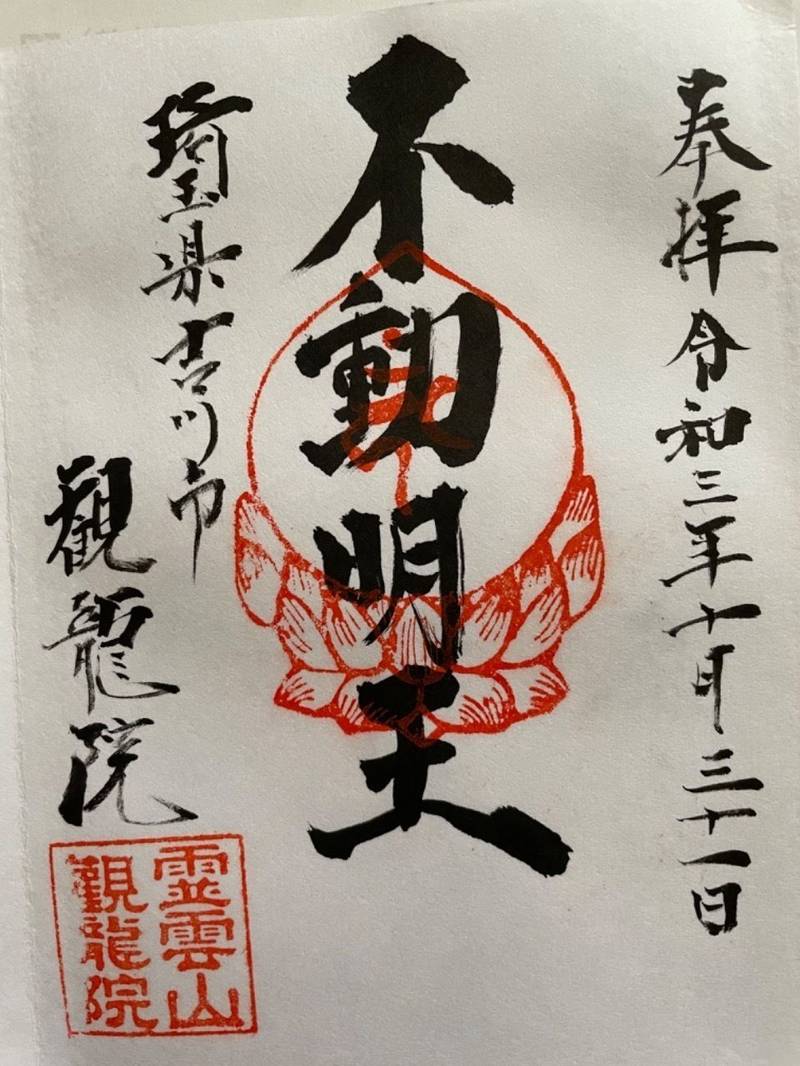 奉拝 令和三年十月三十一日
不動明王
埼玉県吉川市
観龍院
霊雲山
観龍院